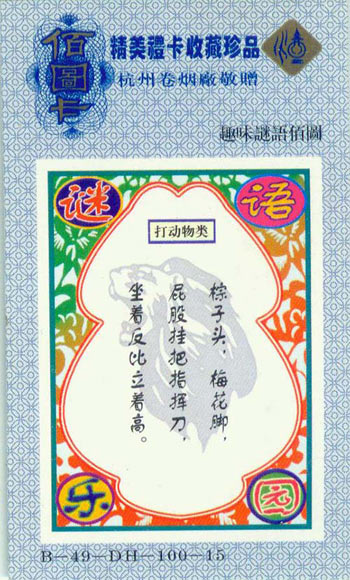 佰圖卡
精美禮卡收藏珍品
杭州卷烟廠敬贈
趣味謎語佰圖
谜语
打动物类
棕子头，梅花脚，
屁股挂把指挥刀，
坐着反比立着高。
乐园
B—49—DH—100—15